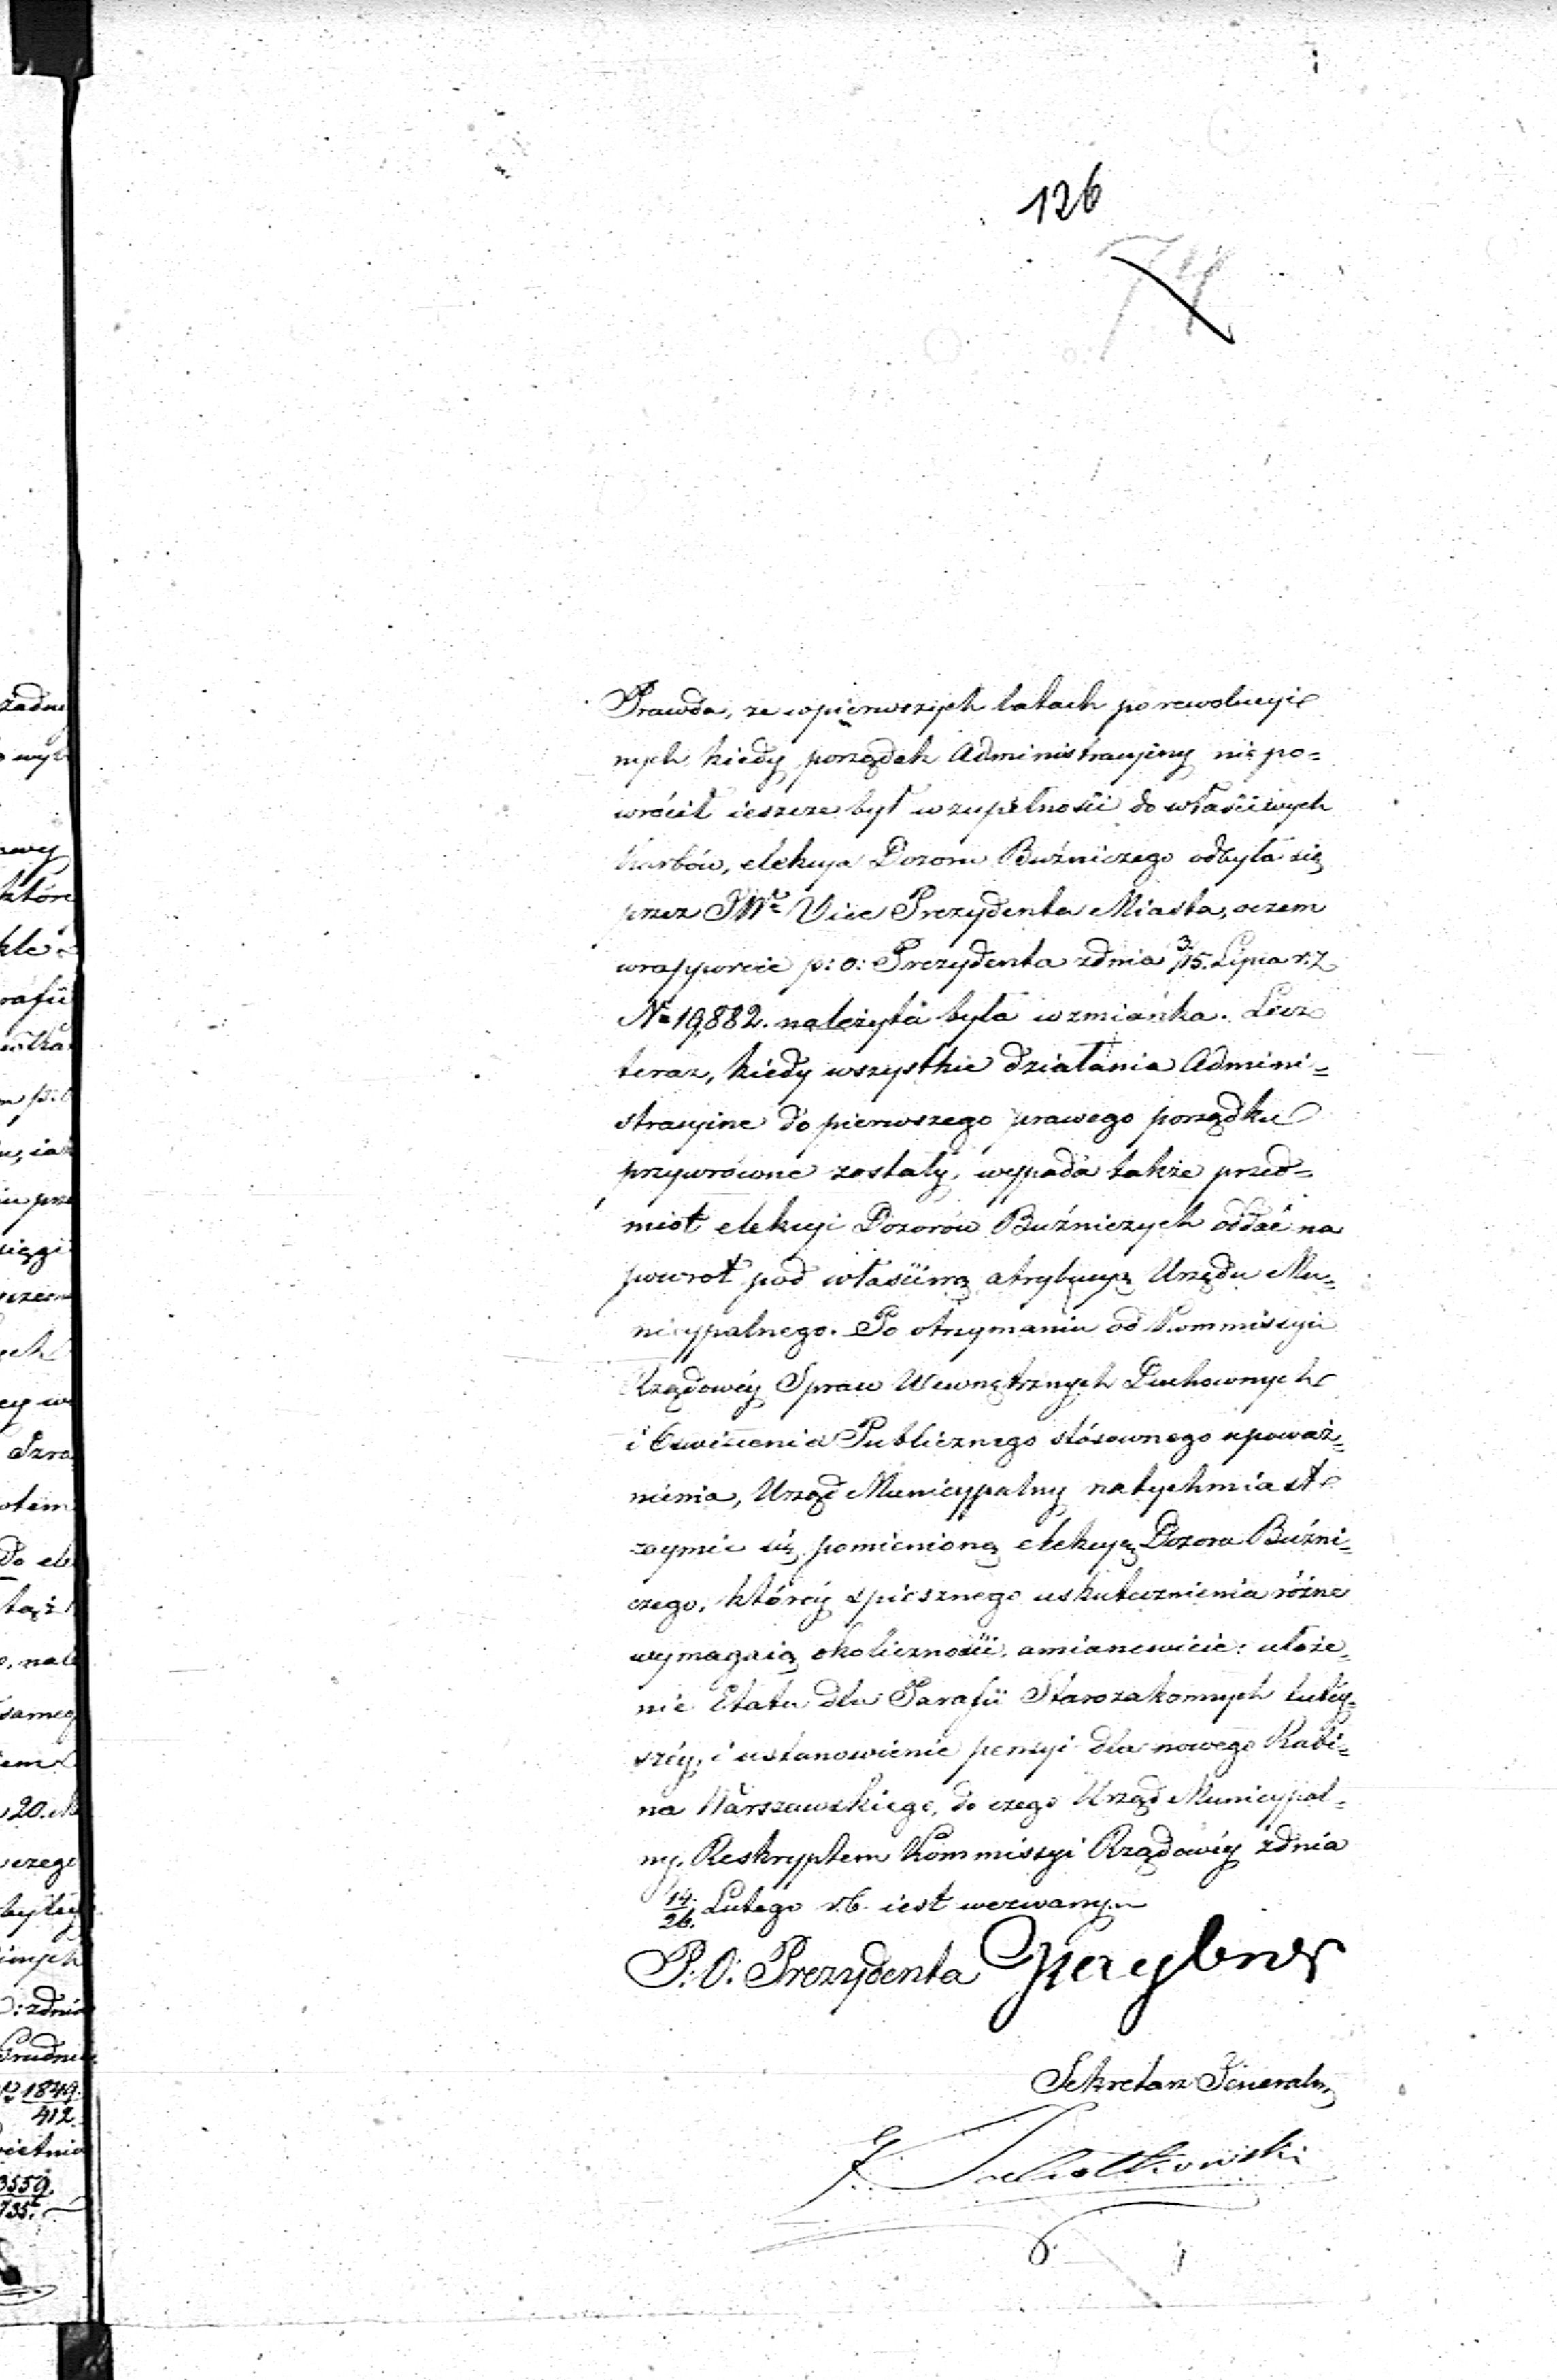 126
74
Prawda, ze w pierwszych latach po rewolucyi
nych kiedy porządek Administracyiny nie po=
wrócił ieszcze był w zupełności do właściwych
karbów, elekcya Dozoru Bużniczego odbyła się
przez JW. Vice Prezydenta Miasta, oczem
w rapporcie p: o: Prezydenta z dnia 3/15. Lipca r. z.
No 19,882. należyta była wzmianka. Lecz
teraz, kiedy wszystkie działania Admini=
stracyine do pierwszego prawego porządku
przywrócone zostały, wypada także przed=
miot elekcyi Dozorów Buźniczych oddać na
powrot pod właściwą atrybucyą Urzędu Mu=
nicypalnego. Po otrzymaniu od Kommissyi
Rządowéy Spraw Wewnętrznych Duchownych
i Oświecenia Publicznego stósownego upoważ=
nienia, Urząd Municypalny natychmiast
zaymie się pomienioną elekcyą Dozoru Buźni=
czego, któréy spiesznego uskutecznienia różne
wymagaią okoliczności, amianowicie: ułoże=
nie Etatu dla Parafii Starozakonnych tutéy=
széy, i ustanowienie pensyi dla nowego Rabi=
na Warszawskiego, do czego Urząd Municypal=
ny, Reskryptem Kommissyi Rządowéy z dnia
14/26. Lutego r. b. iest wezwany.
P: O: Prezydenta Graybner
Sekretarz Jeneralny